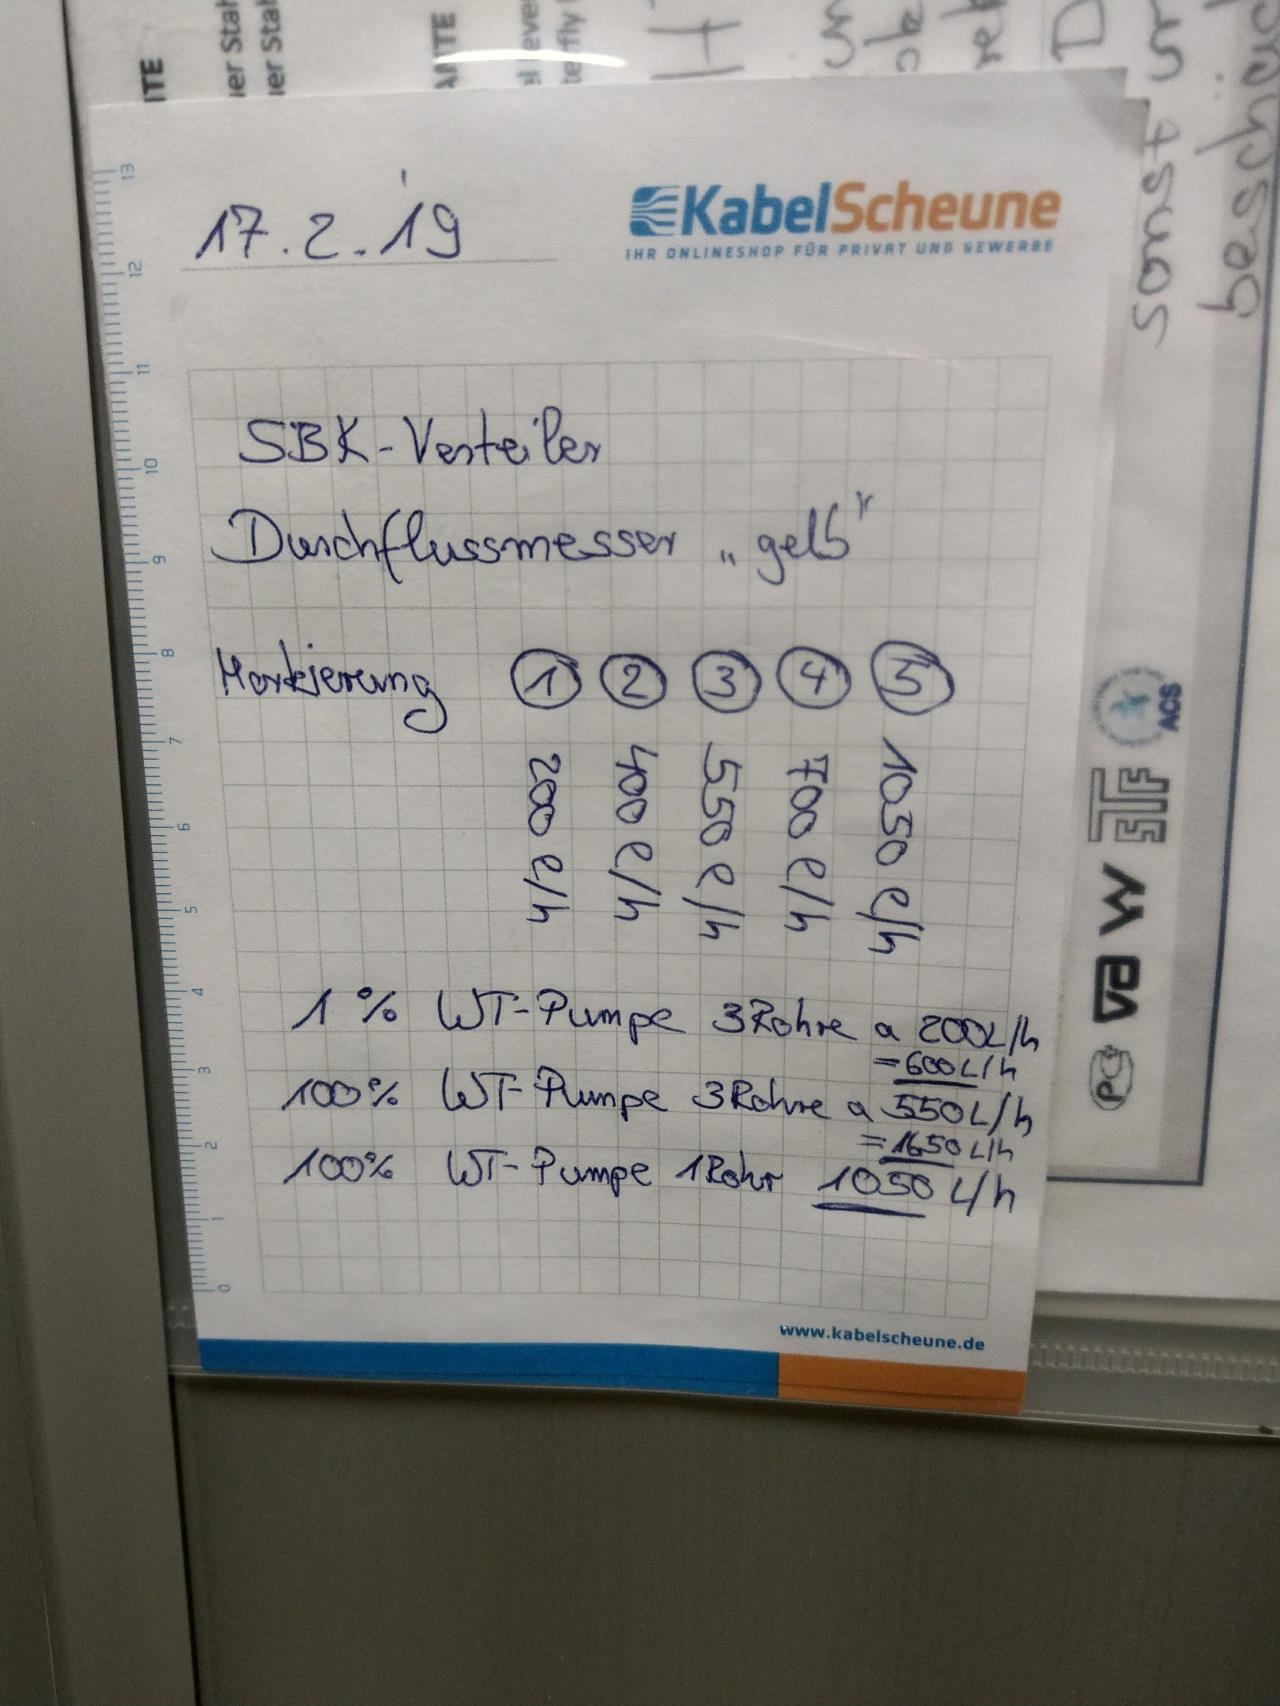 17.2.'19
KabelScheune
IHR ONLINESHOP FÜR PRIVAT UND GEWERBE
SBK-Verteiler
Durchflussmesser „gelb"
Markierung ① ② ③ ④ ⑤
200 l/h
400 l/h
550 l/h
700 l/h
1050 l/h
1% WT-Pumpe 3Rohre a 200L/h
=600L/h
100% WT-Pumpe 3Rohre a 550L/h
=1650L/h
100% WT-Pumpe 1Rohr 1050 L/h
www.kabelscheune.de
13
12
11
10
9
8
7
6
5
4
3
2
1
0
ACS